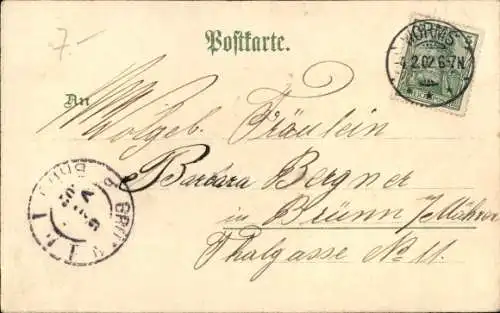 7-
Postkarte.
WORMS
2.02.6-7N.
An
Wolgeb. Fräulein
Barbara Bergner
in Brünn /Mähren
Thalgasse No 11.